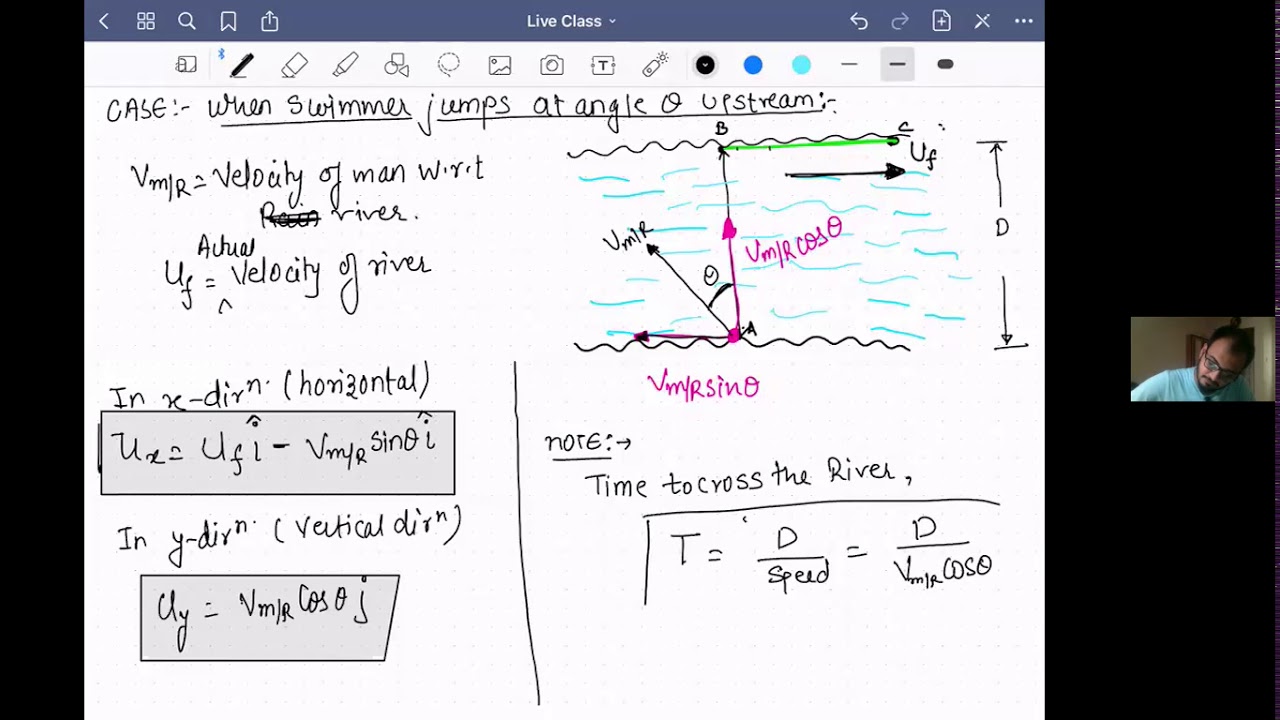 Live Class
CASE:- When swimmer jumps at angle θ upstream:-
Vm/R = Velocity of man w.r.t
river.
Actual
Uf = Velocity of river
^
B
C
Uf
Vm/R
θ
Vm/R cosθ
D
A
Vm/R sinθ
In x-dirⁿ. (horizontal)
Ux = Uf î - Vm/R sinθ î
In y-dirⁿ. (vertical dirⁿ)
Uy = Vm/R Cosθ j
NOTE:→
Time to cross the River,
T = D/Speed = D/Vm/R cosθ